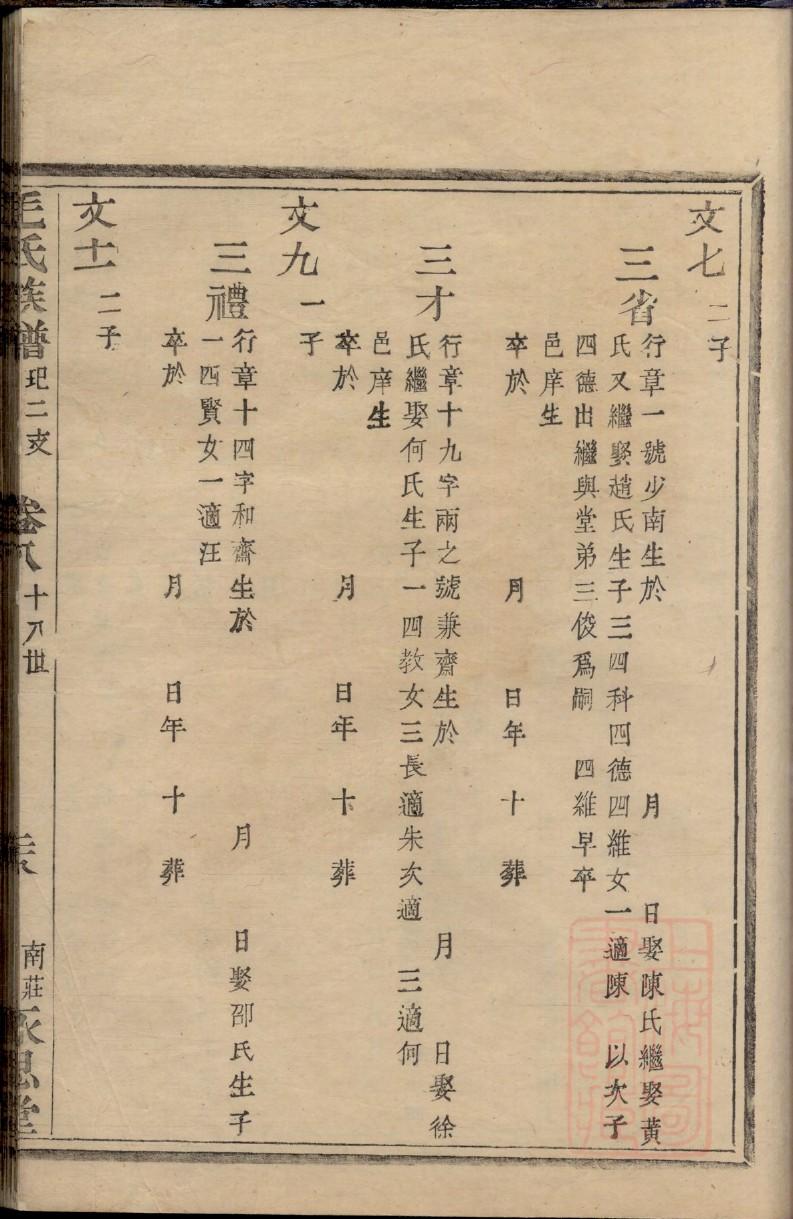 文七 二子
三省
行章一號少南生於 月 日娶陳氏繼娶黃
氏又繼娶趙氏生子三四科四德四維女一適陳 以次子
四德出繼與堂弟三俊爲嗣 四維早卒
邑庠生
卒於 月 日年 十 葬
三才
行章十九字兩之號兼齋生於 月 日娶徐
氏繼娶何氏生子一四教女三長適朱次適 三適何
邑庠生
卒於 月 日年 十 葬
文九 一子
三禮
行章十四字和齋生於 月 日娶邵氏生子
一四賢女一適汪
卒於 月 日年 十 葬
文十一 二子
毛氏族譜 圯二支 卷八 十八世 南莊 永思堂